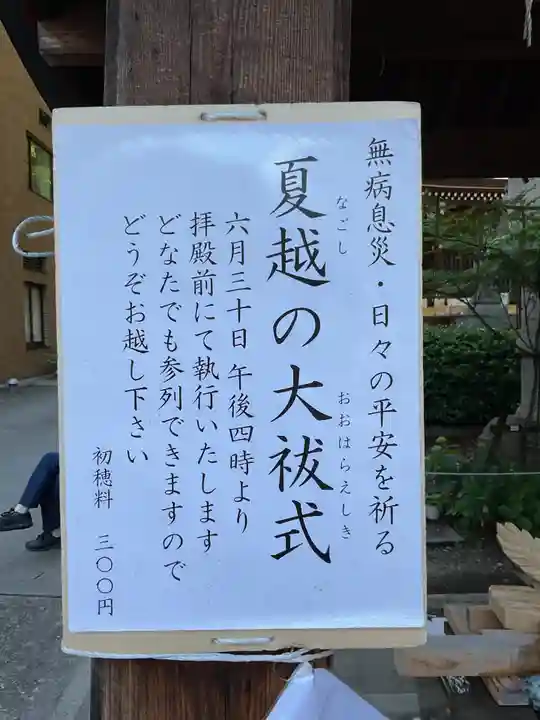 無病息災・日々の平安を祈る
夏越の大祓式
なごし
おおはらえしき
六月三十日午後四時より
拝殿前にて執行いたします
どなたでも参列できますので
どうぞお越し下さい
初穂料 三〇〇円